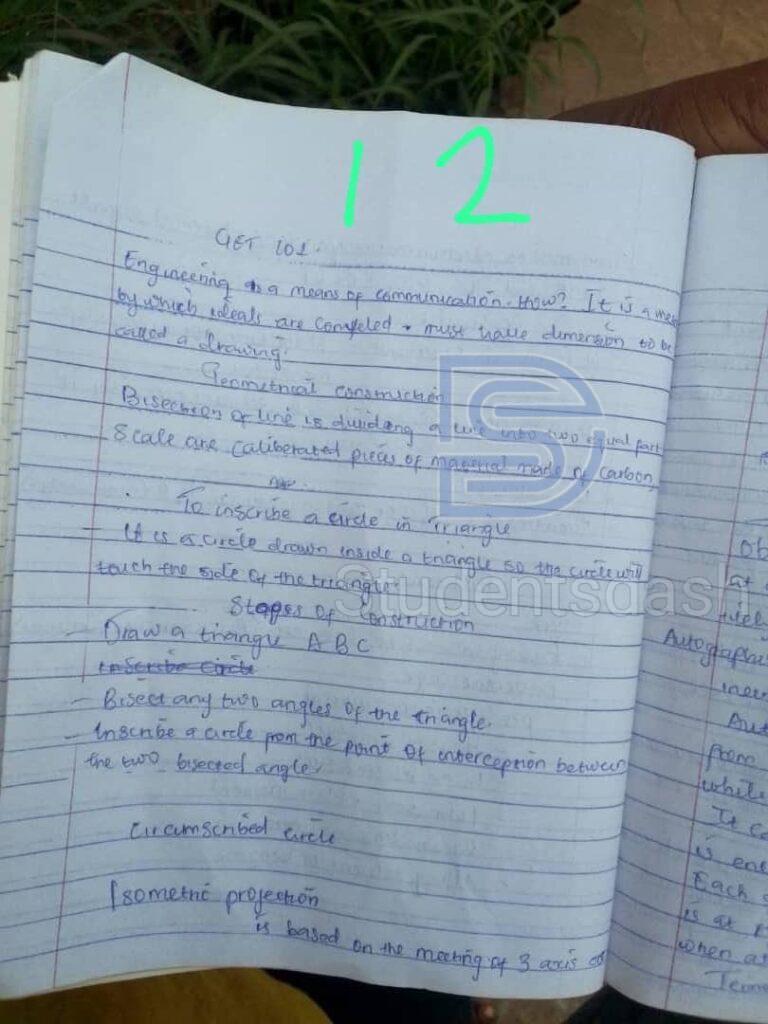 1 2
GET 101.
Engineering is a means of communication. How? It is a mea
by which ideals are conveled & must have dimension to be
called a drawing.
Geometrical construction
Bisection of line is dividing a line into two equal part
Scale are caliberated pieces of material made of carbon,
To inscribe a circle in Triangle
- It is a circle drawn inside a triangle so the circle will
touch the side of the triangle
Studentsdash
Stages of Construction
- Draw a triangle A B C
Inscribe circle
- Bisect any two angles of the triangle.
- Inscribe a circle from the point of interception between
the two bisected angle.
Circumscribed circle
Isometric projection
is based on the meeting of 3 axis
ob
at
Autographi
Aut
from
while
It c
is enc
Each
is at
when as